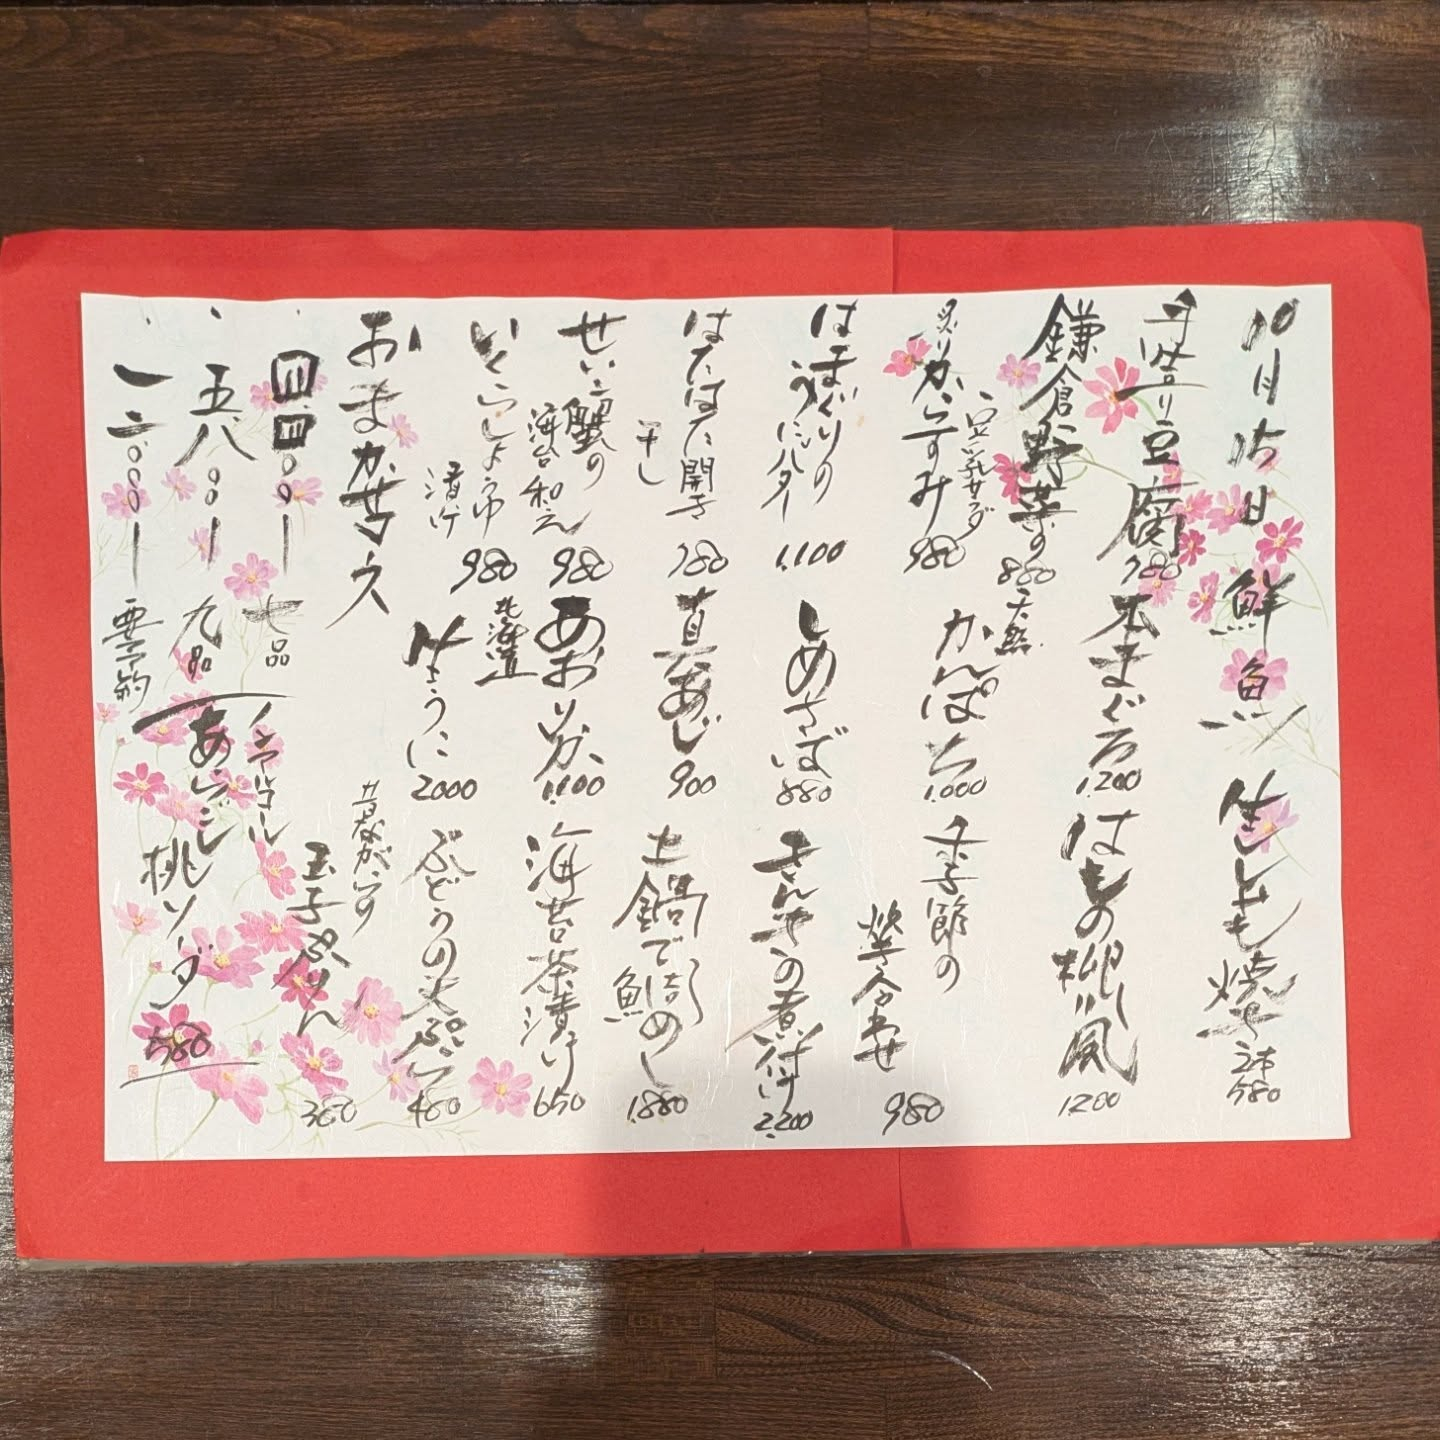 10月15日
手造り豆腐
780
鎌倉野菜の
豆乳サラダ
880
炙りからすみ
980
はまぐりの
うにバター
1.100
はたはた開き
干し
780
せいこ蟹の
海苔和え
980
いくらしょうゆ
漬け
980
おまかせコース
四.四〇〇ー
七品
五.八〇〇ー
九品
一二.〇〇〇ー
要予約
鮮魚
本まぐろ
1.200
天然
かんぱち
1.000
しめさば
880
真あじ
900
あおりいか
1.100
北海道
生うに
2000
生しいたけ焼き
2本
580
はもの柳川風
1200
季節の
炊き合わせ
980
きんきの煮付け
2.200
土鍋で鯛めし
1.880
海苔茶漬け
650
ぶどうの天ぷら
480
昔ながらの
玉子ぷりん
380
ノンアルコール
あらごし桃ソーダ
580